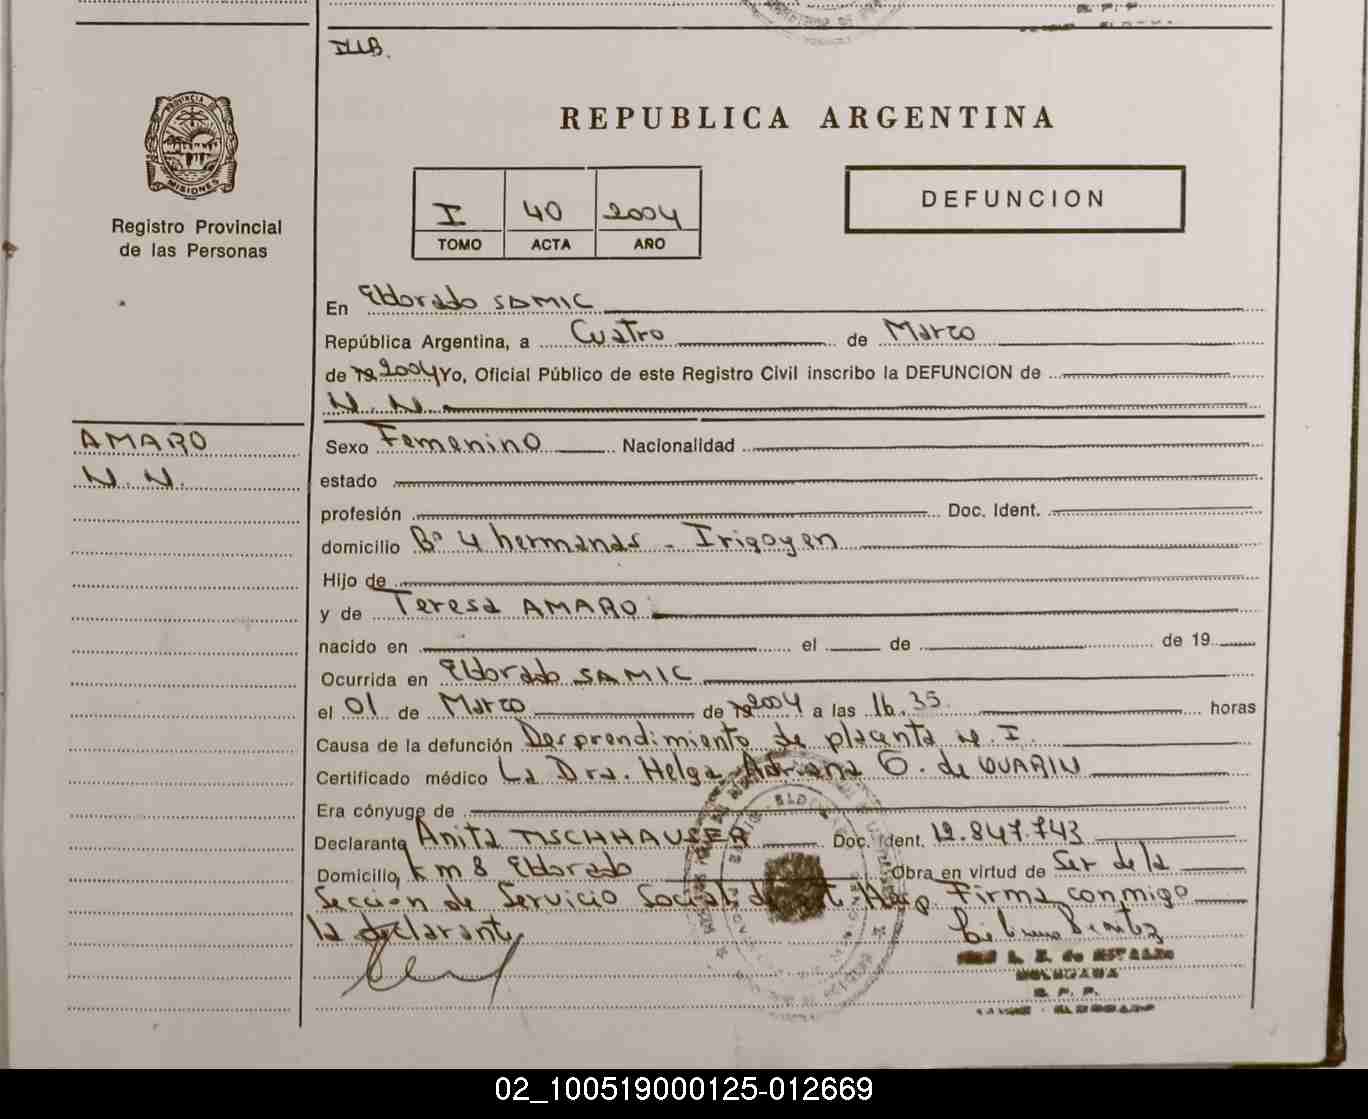 REPUBLICA ARGENTINA
PROVINCIA DE
MISIONES
Registro Provincial
de las Personas
I 40 2004
TOMO ACTA AÑO
DEFUNCION
En Eldorado SAMIC
República Argentina, a Cuatro de Marzo
de 19 2004 Yo, Oficial Público de este Registro Civil inscribo la DEFUNCION de
N.N.
AMARO
N.N.
Sexo Femenino Nacionalidad
estado
profesión Doc. Ident.
domicilio Bº 4 hermanas - Irigoyen
Hijo de
y de Teresa AMARO
nacido en el de de 19
Ocurrida en Eldorado SAMIC
el 01 de Marzo de 19 2004 a las 16.35 horas
Causa de la defunción Desprendimiento de placenta N.I.
Certificado médico La Dra. Helga Adriana G. de
Era cónyuge de
Declarante Anita TISCHHAUSER Doc. Ident. 12.847.743
Domicilio, km 8 Eldorado Obra en virtud de Ser de la
Sección de Servicio Social Firma conmigo
la declarante
DELEGADA
R. P. P.
02_100519000125-012669